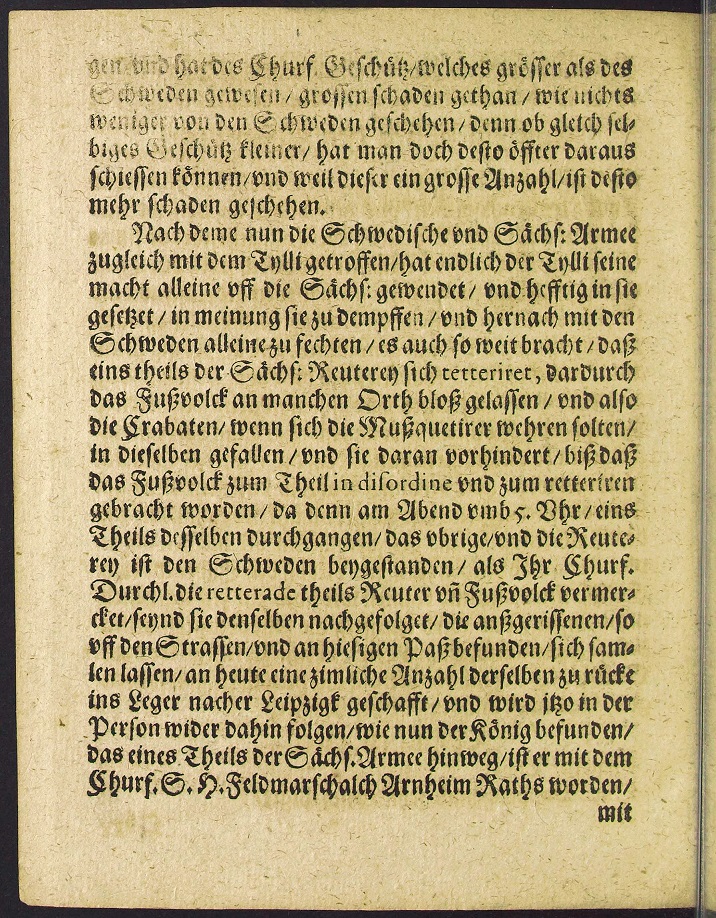 gen/ vnd hat des Churf. Geschütz/welches grösser als des
Schweden gewesen/ grossen schaden gethan/ wie nichts
weniger von den Schweden geschehen/ denn ob gleich sel-
biges Geschütz kleiner/ hat man doch desto öffter daraus
schiessen können/vnd weil dieser ein grosse Anzahl/ist desto
mehr schaden geschehen.
Nach deme nun die Schwedische vnd Sächs: Armee
zugleich mit dem Tylli getroffen/hat endlich der Tylli seine
macht alleine vff die Sächs: gewendet/ vnd hefftig in sie
gesetzet/ in meinung sie zu dempffen/ vnd hernach mit den
Schweden alleine zu fechten/ es auch so weit bracht/ daß
eins theils der Sächs: Reuterey sich retteriret, dardurch
das Fußvolck an manchen Orth bloß gelassen/ vnd also
die Crabaten/ wenn sich die Mußquetirer wehren solten/
in dieselben gefallen/ vnd sie daran vorhindert/ biß daß
das Fußvolck zum Theil in disordine vnd zum retteriren
gebracht worden/ da denn am Abend vmb 5. Vhr/ eins
Theils desselben durchgangen/ das vbrige/vnd die Reute-
rey ist den Schweden beygestanden/ als Ihr Churf.
Durchl. die retterade theils Reuter vn̄ Fußvolck vermer-
cket/seynd sie denselben nachgefolget/ die außgerissenen/so
vff den Strassen/vnd an hiesigen Paß befunden/sich sam-
len lassen/ an heute eine zimliche Anzahl derselben zu rücke
ins Leger nacher Leipzigk geschafft/ vnd wird itzo in der
Person wider dahin folgen/wie nun der König befunden/
das eines Theils der Sächs. Armee hinweg/ist er mit dem
Churf. S. H. Feldmarschalch Arnheim Raths worden/
mit